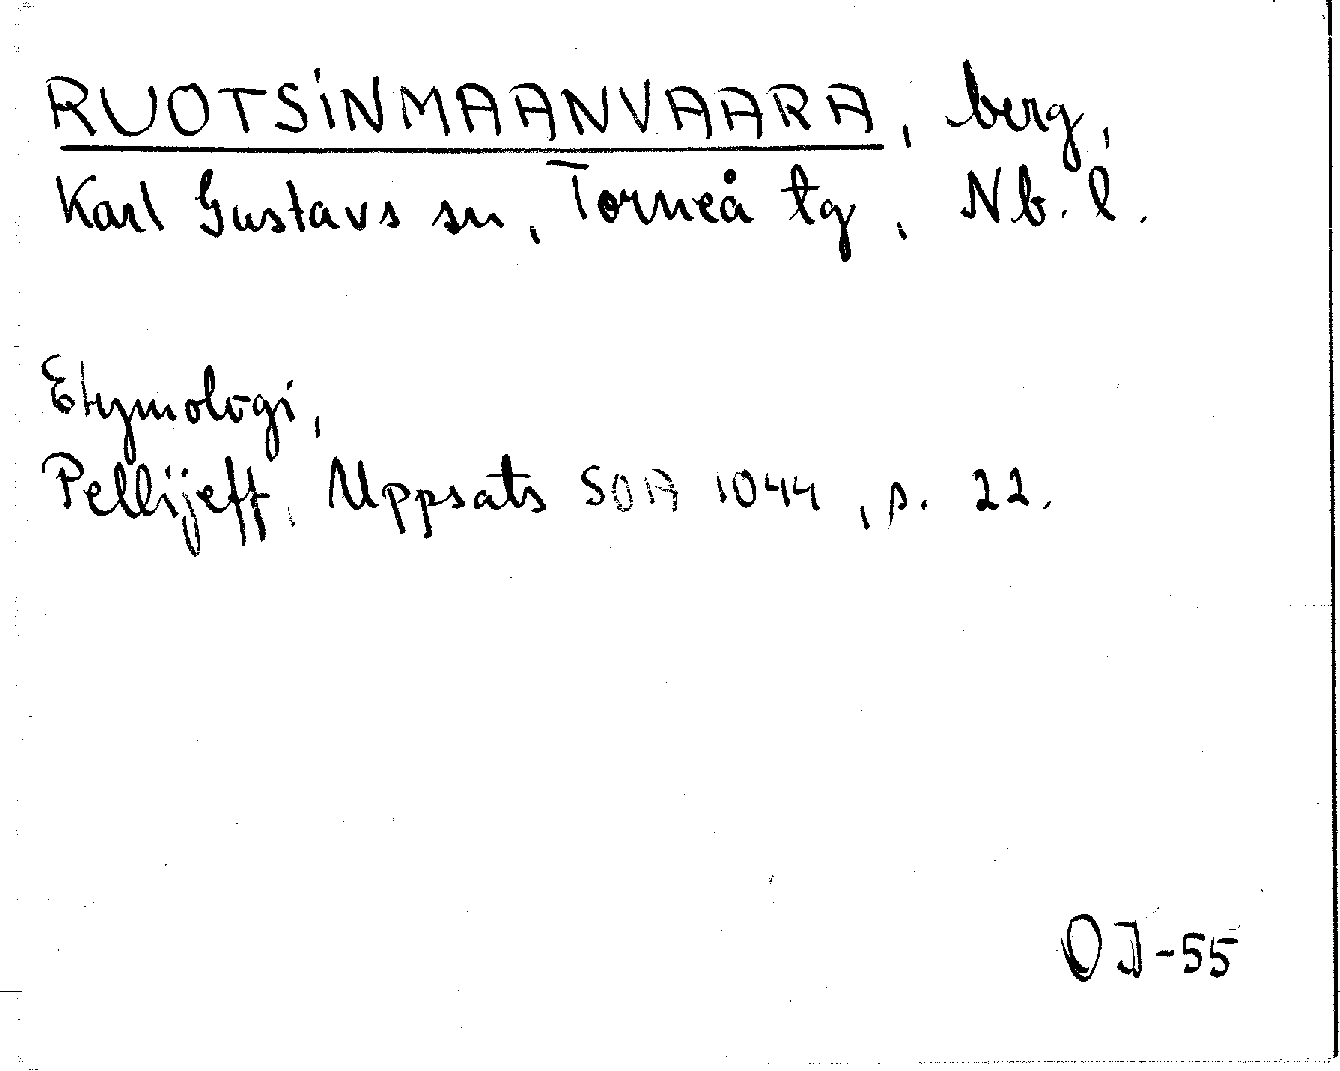 RUOTSINMAANVAARA, berg,
Karl Gustavs sn, Torneå tg, Nb. l.
Etymologi,
Pellijeff, Uppsats SOA 1044, s. 22.
OJ-55